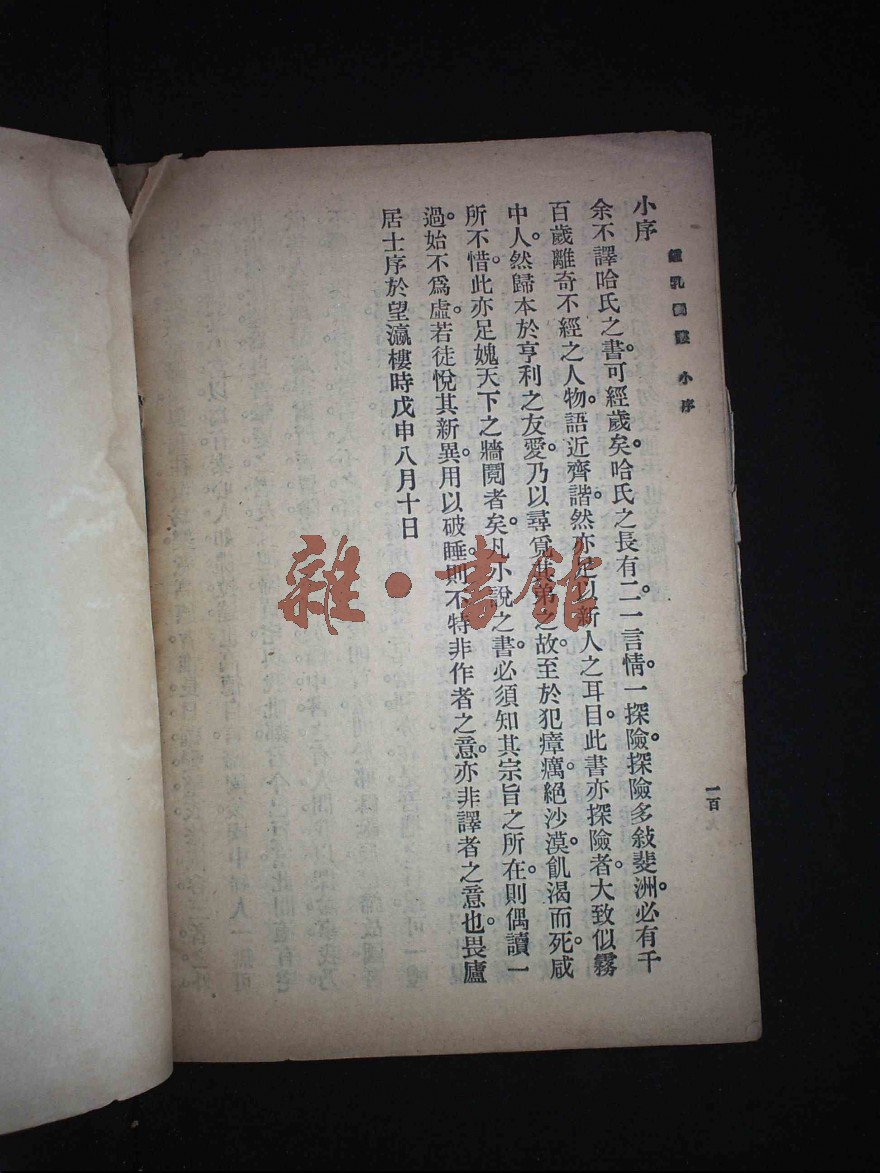 小序
余不譯哈氏之書可經歲矣。哈氏之長有二。一言情。一探險。探險多敍斐洲。必有千
百歲離奇不經之人物。語近齊諧。然亦足以新人之耳目。此書亦探險者。大致似霧
中人。然歸本於亨利之友愛。乃以尋覓其弟之故。至於犯瘴癘。絕沙漠。飢渴而死。咸
所不惜。此亦足媿天下之牆鬩者矣。凡小說之書。必須知其宗旨之所在。則偶讀一
過。始不爲虛。若徒悅其新異。用以破睡。則不特非作者之意。亦非譯者之意也。畏廬
居士序於望瀛樓時戊申八月十日
小序
一百
雜·書館